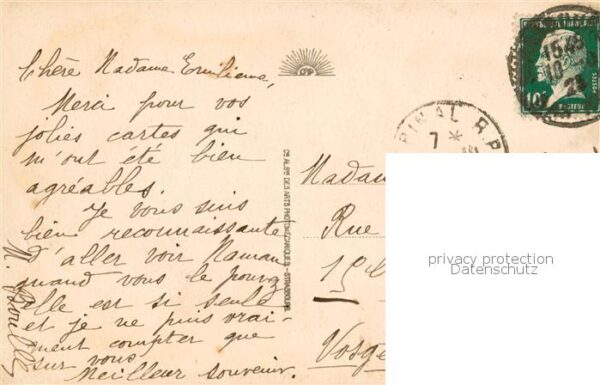 Chère Madame Emiliane,
Merci pour vos
jolies cartes qui
m'ont été bien
agréables.
Je vous suis
bien reconnaissante
d'aller voir Maman
quand vous le pouvez
elle est si seule
et je ne puis vrai-
ment compter que
sur vous
Meilleur souvenir.
M.
OP
CIE ALSNE DES ARTS PHOTOMECANIQUES - STRASBOURG
PINAL R.P
7 *
15 45
10
10c
PASTEUR
POSTES
Madam
Rue
Vosge
privacy protection
Datenschutz